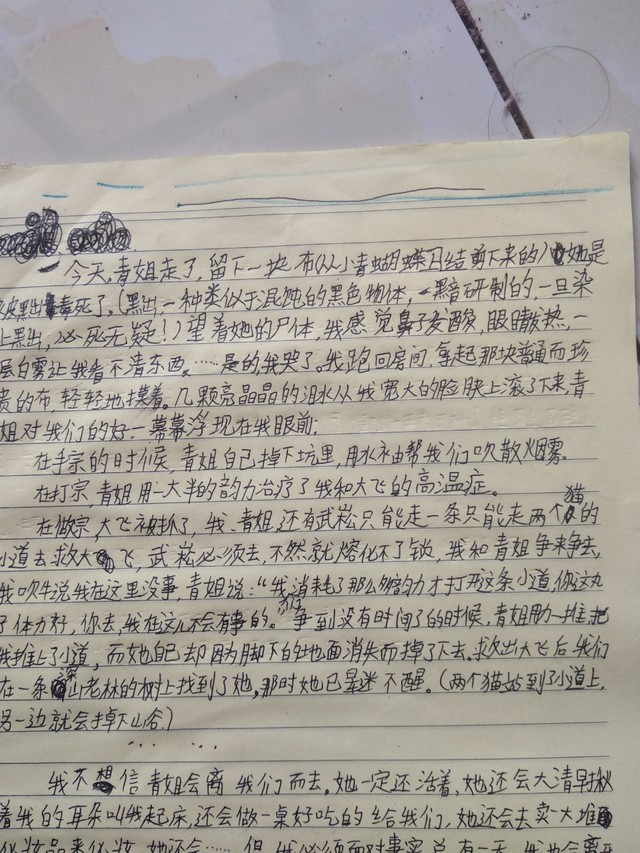 今天,青姐走了,留下一块布(从小青蝴蝶日结剪下来的)她是
皮黑出毒死了。(黑出,一种类似于混饨的黑色物体,一黯研制的,一旦染
上黑出,必死无疑!)望着她的尸体,我感觉鼻子发酸,眼睛发热,一
层白雾让我看不清东西。……是的,我哭了。我跑回房间,拿起那块普通而珍
贵的布,轻轻地摸着。几颗亮晶晶的泪水从我宽大的脸肤上滚了下来,青
姐对我们的好,一幕幕浮现在我眼前:
在手宗的时候,青姐自己掉下坑里,用水袖帮我们吹散烟雾。
在打宗,青姐用一大半的韵力治疗了我和大飞的高温症。
在做宗,大飞被抓了,我、青姐,还有武崧只能走一条只能走两个猫的
小道去救大飞,武崧必须去,不然就熔化不了锁,我和青姐争来争去,
我吹牛说我在这里没事,青姐说:“我消耗了那么多韵力才打开这条小道,你这丸
了体力好,你去,我在这儿不会有事的。”争到没有时间了的时候,青姐用力一推,把
我推上了小道,而她自己却因为脚下的地面消失而掉了下去。救出大飞后,我们
在一条深山老林的树上找到了她,那时她已昏迷不醒。(两个猫站到了小道上,
另一边就会掉下山谷)
……
我不想信青姐会离我们而去。她一定还活着,她还会大清早揪
着我的耳朵叫我起床,还会做一桌好吃的给我们,她还会去卖一大堆
化妆品来化妆,她还会……但,我必须面对事实,总有一天,我也会离开